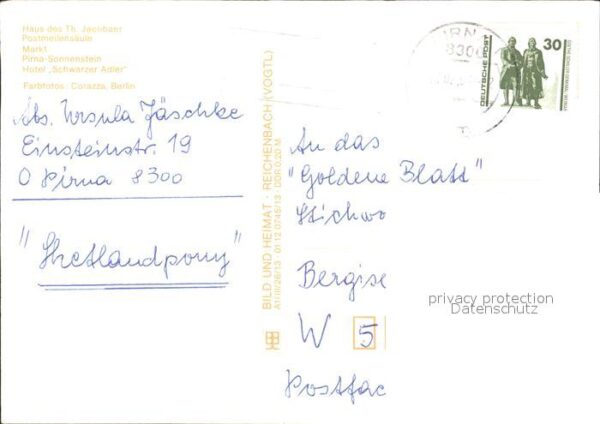 Haus des Th. Jacobaer
Postmeilensäule
Markt
Pirna-Sonnenstein
Hotel „Schwarzer Adler“
Farbfotos: Corazza, Berlin
Abs. Ursula Jäschke
Einsteinstr. 19
O Pirna 8300
"Shetlandpony"
BILD UND HEIMAT · REICHENBACH (VOGTL)
A1/III/26/13 01 12 0745/13 DDR 0,20 M
8300
DEUTSCHE POST
30
An das
"Goldene Blatt"
Stichwo
Bergise
W 5
Postfac
privacy protection
Datenschutz